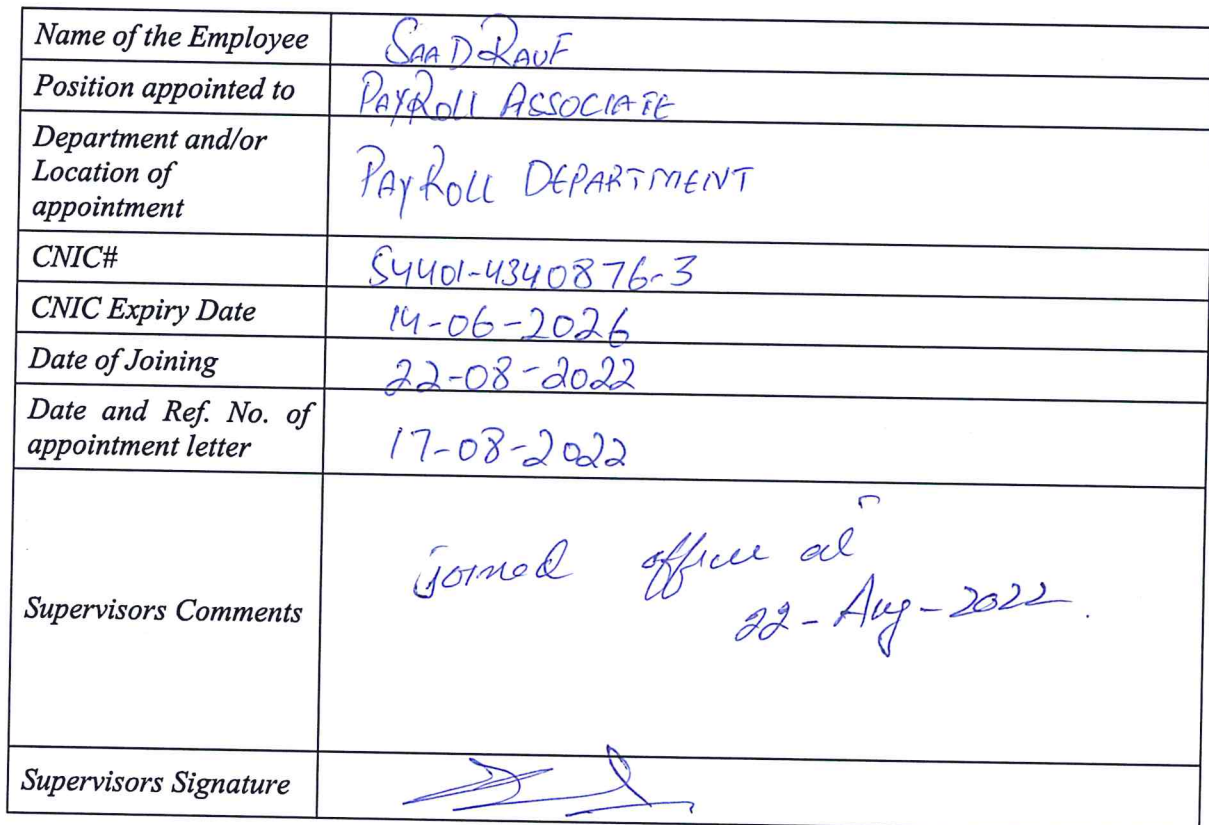 Name of the Employee SAAD RAUF
Position appointed to PAYROLL ASSOCIATE
Department and/or
Location of
appointment
PAYROLL DEPARTMENT
CNIC# 54401-4340876-3
CNIC Expiry Date 14-06-2026
Date of Joining 22-08-2022
Date and Ref. No. of
appointment letter
17-08-2022
Supervisors Comments
joined office at
22-Aug-2022.
Supervisors Signature